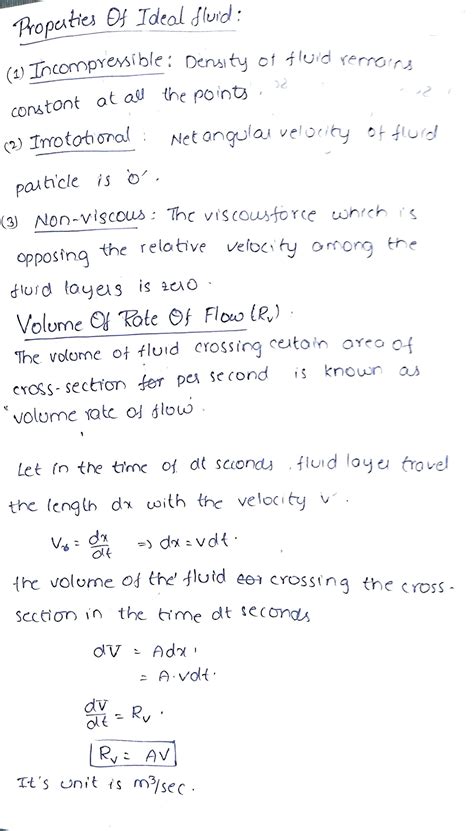 Properties Of Ideal fluid:
(1) Incompressible: Density of fluid remains
constant at all the points.
(2) Irrotational: Net angular velocity of fluid
particle is '0'.
(3) Non-viscous: The viscous force which is
opposing the relative velocity among the
fluid layers is zero.
Volume Of Rate Of Flow (Rv).
The volume of fluid crossing certain area of
cross-section for per second is known as
volume rate of flow.
Let in the time of dt seconds, fluid layer travel
the length dx with the velocity v.
V = dx/dt => dx = vdt.
the volume of the fluid crossing the cross-
section in the time dt seconds
dV = Adx
= A.vdt.
dV/dt = Rv.
Rv = AV
It's unit is m³/sec.